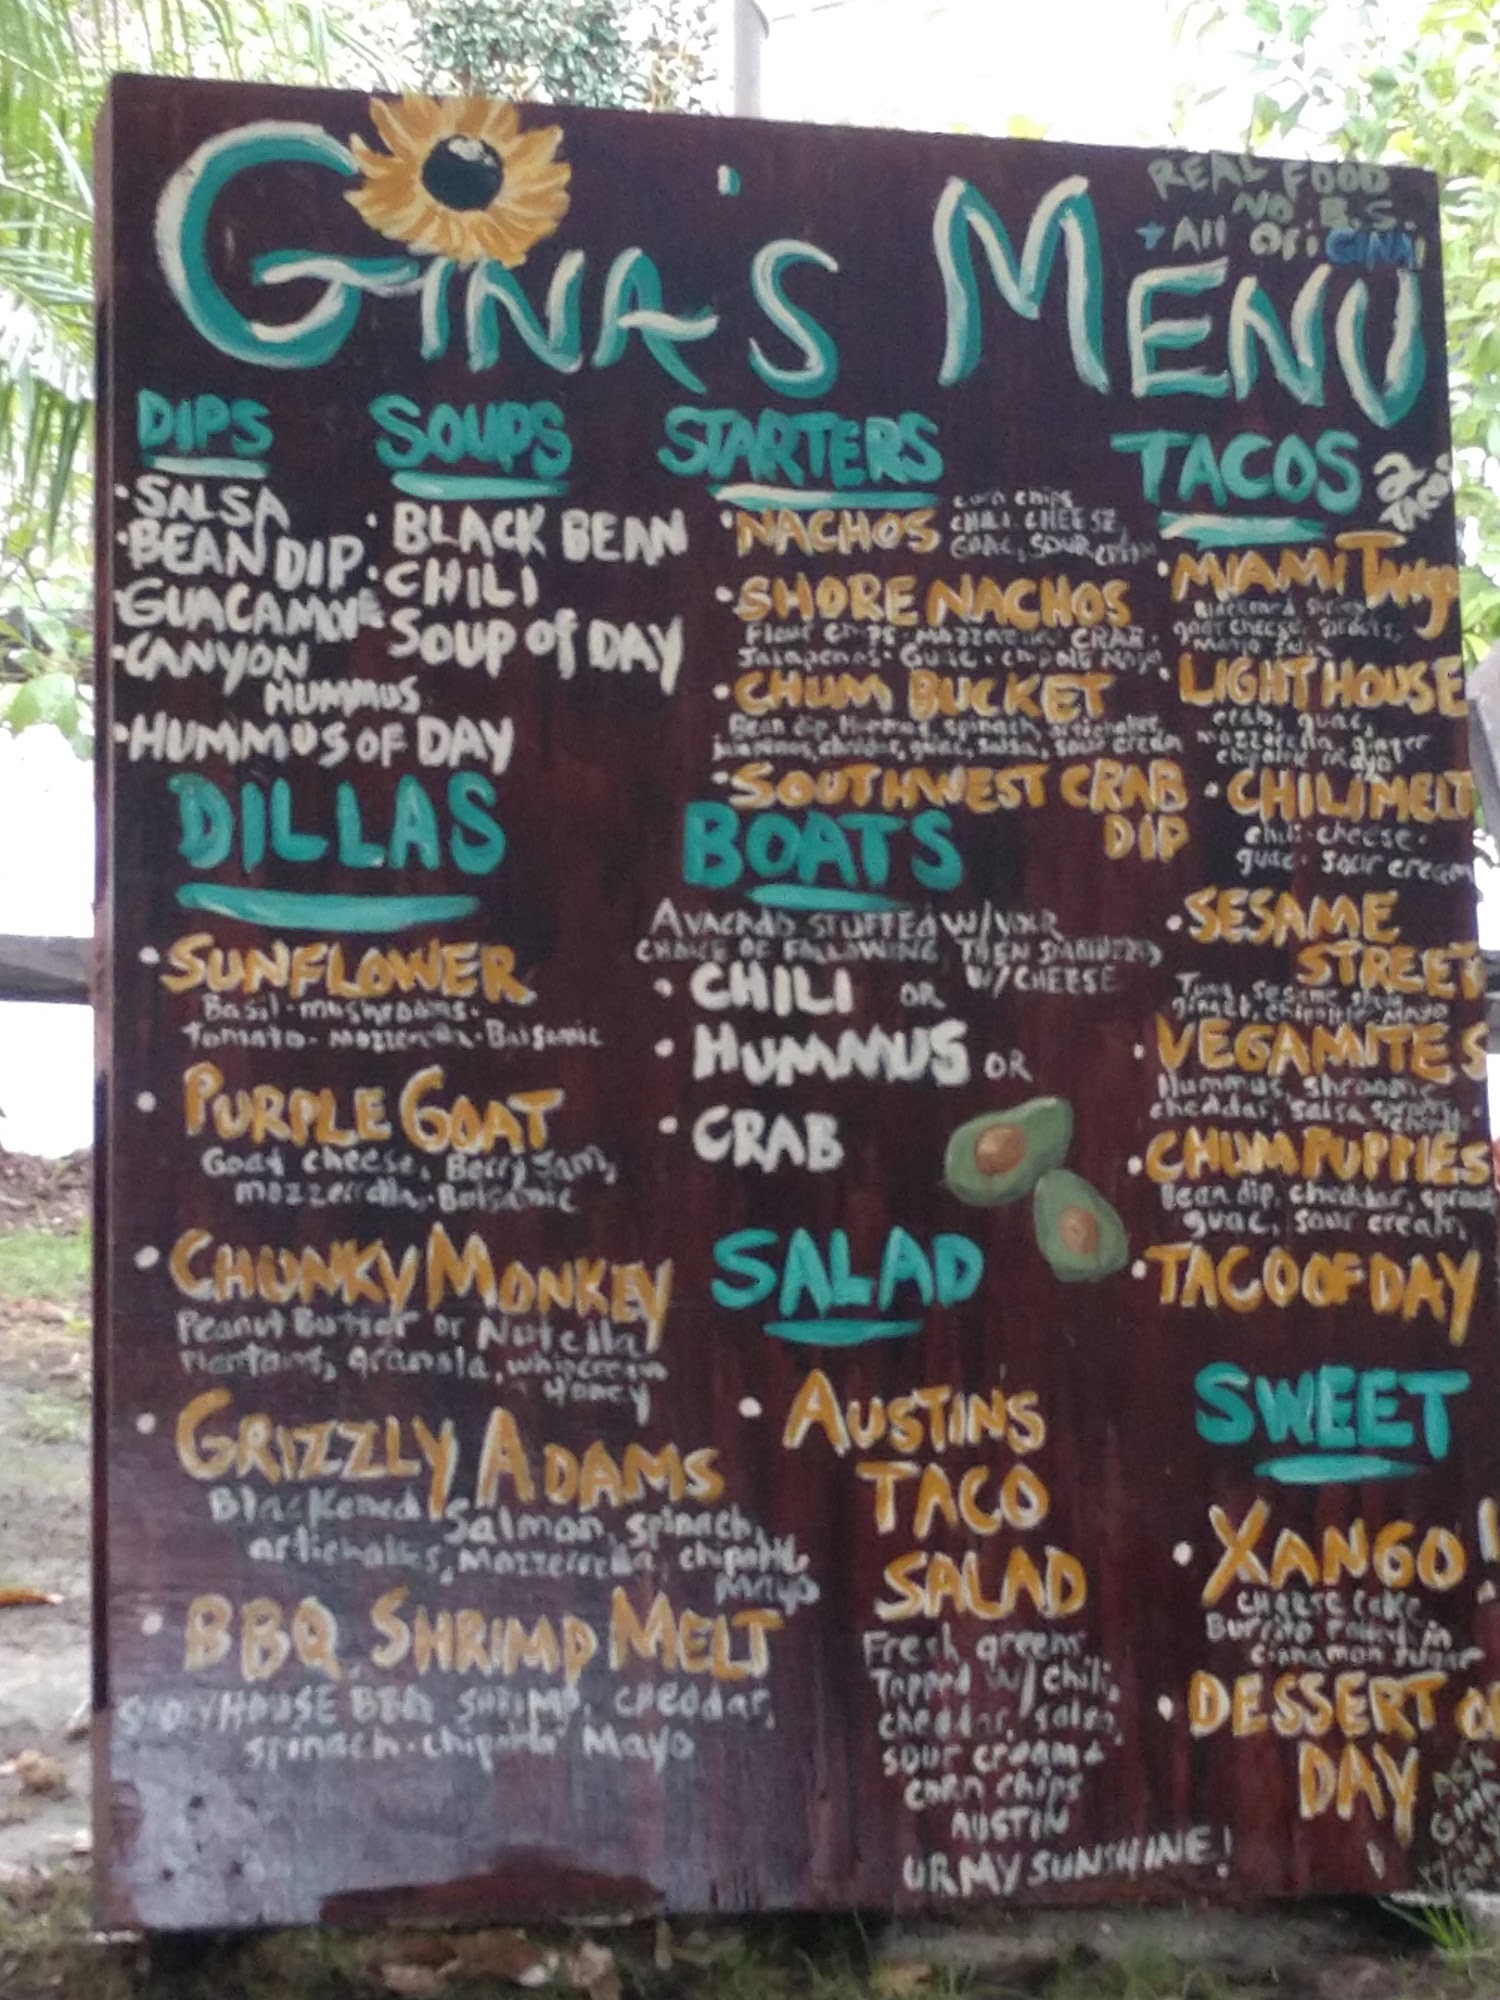 REAL FOOD
NO B.S.
+ All OriGINAl
GINA'S MENU
DIPS
• SALSA
• BEAN DIP
• GUACAMOLE
• CANYON
HUMMUS
• HUMMUS OF DAY
SOUPS
• BLACK BEAN
• CHILI
• SOUP of DAY
STARTERS
• NACHOS
corn chips,
CHILI, CHEESE,
GUAC, SOUR CREAM
• SHORE NACHOS
Flour chips • Mozzerella, CRAB •
Jalapenos • Guac • chipotle Mayo
• CHUM BUCKET
Bean dip, Hummus, spinach, artichokes,
jalapenos, cheddar, guac, salsa, sour cream
• SOUTHWEST CRAB
DIP
TACOS
2
TACOS
• MIAMI Tango
Blackened Shrimp
goat cheese, sprouts,
Mango Salsa
• LIGHTHOUSE
crab, guac,
mozzerella, ginger
chipotle mayo
• CHILI MELT
chili • cheese •
guac • sour cream
• SESAME
STREET
Tuna, sesame
ginger, chipotle Mayo
• VEGAMITES
Hummus, shrooms,
cheddar, salsa
• CHUM PUPPIES
Bean dip, cheddar,
guac, sour cream,
• TACO OF DAY
DILLAS
• SUNFLOWER
Basil • mushrooms •
Tomato • mozzerella • Balsamic
• PURPLE GOAT
Goat cheese, Berry Jam,
mozzerella • Balsamic
• CHUNKY MONKEY
Peanut Butter or Nutella
Plantains, granola, whipcream
Honey
• GRIZZLY ADAMS
Blackened Salmon, spinach,
artichokes, mozzerella, chipotle
Mayo
• BBQ SHRIMP MELT
BBQ shrimp, cheddar,
spinach • chipotle Mayo
BOATS
AVACADO STUFFED W/YOUR
CHOICE OF FOLLOWING, THEN
W/CHEESE
• CHILI OR
• HUMMUS OR
• CRAB
SALAD
• AUSTIN'S
TACO
SALAD
Fresh greens
Topped w/ chili,
cheddar, salsa,
sour cream +
corn chips
AUSTIN
UR MY SUNSHINE!
SWEET
• XANGO!
CHEESE CAKE
Burrito rolled in
cinnamon sugar
• DESSERT OF
DAY
ASK